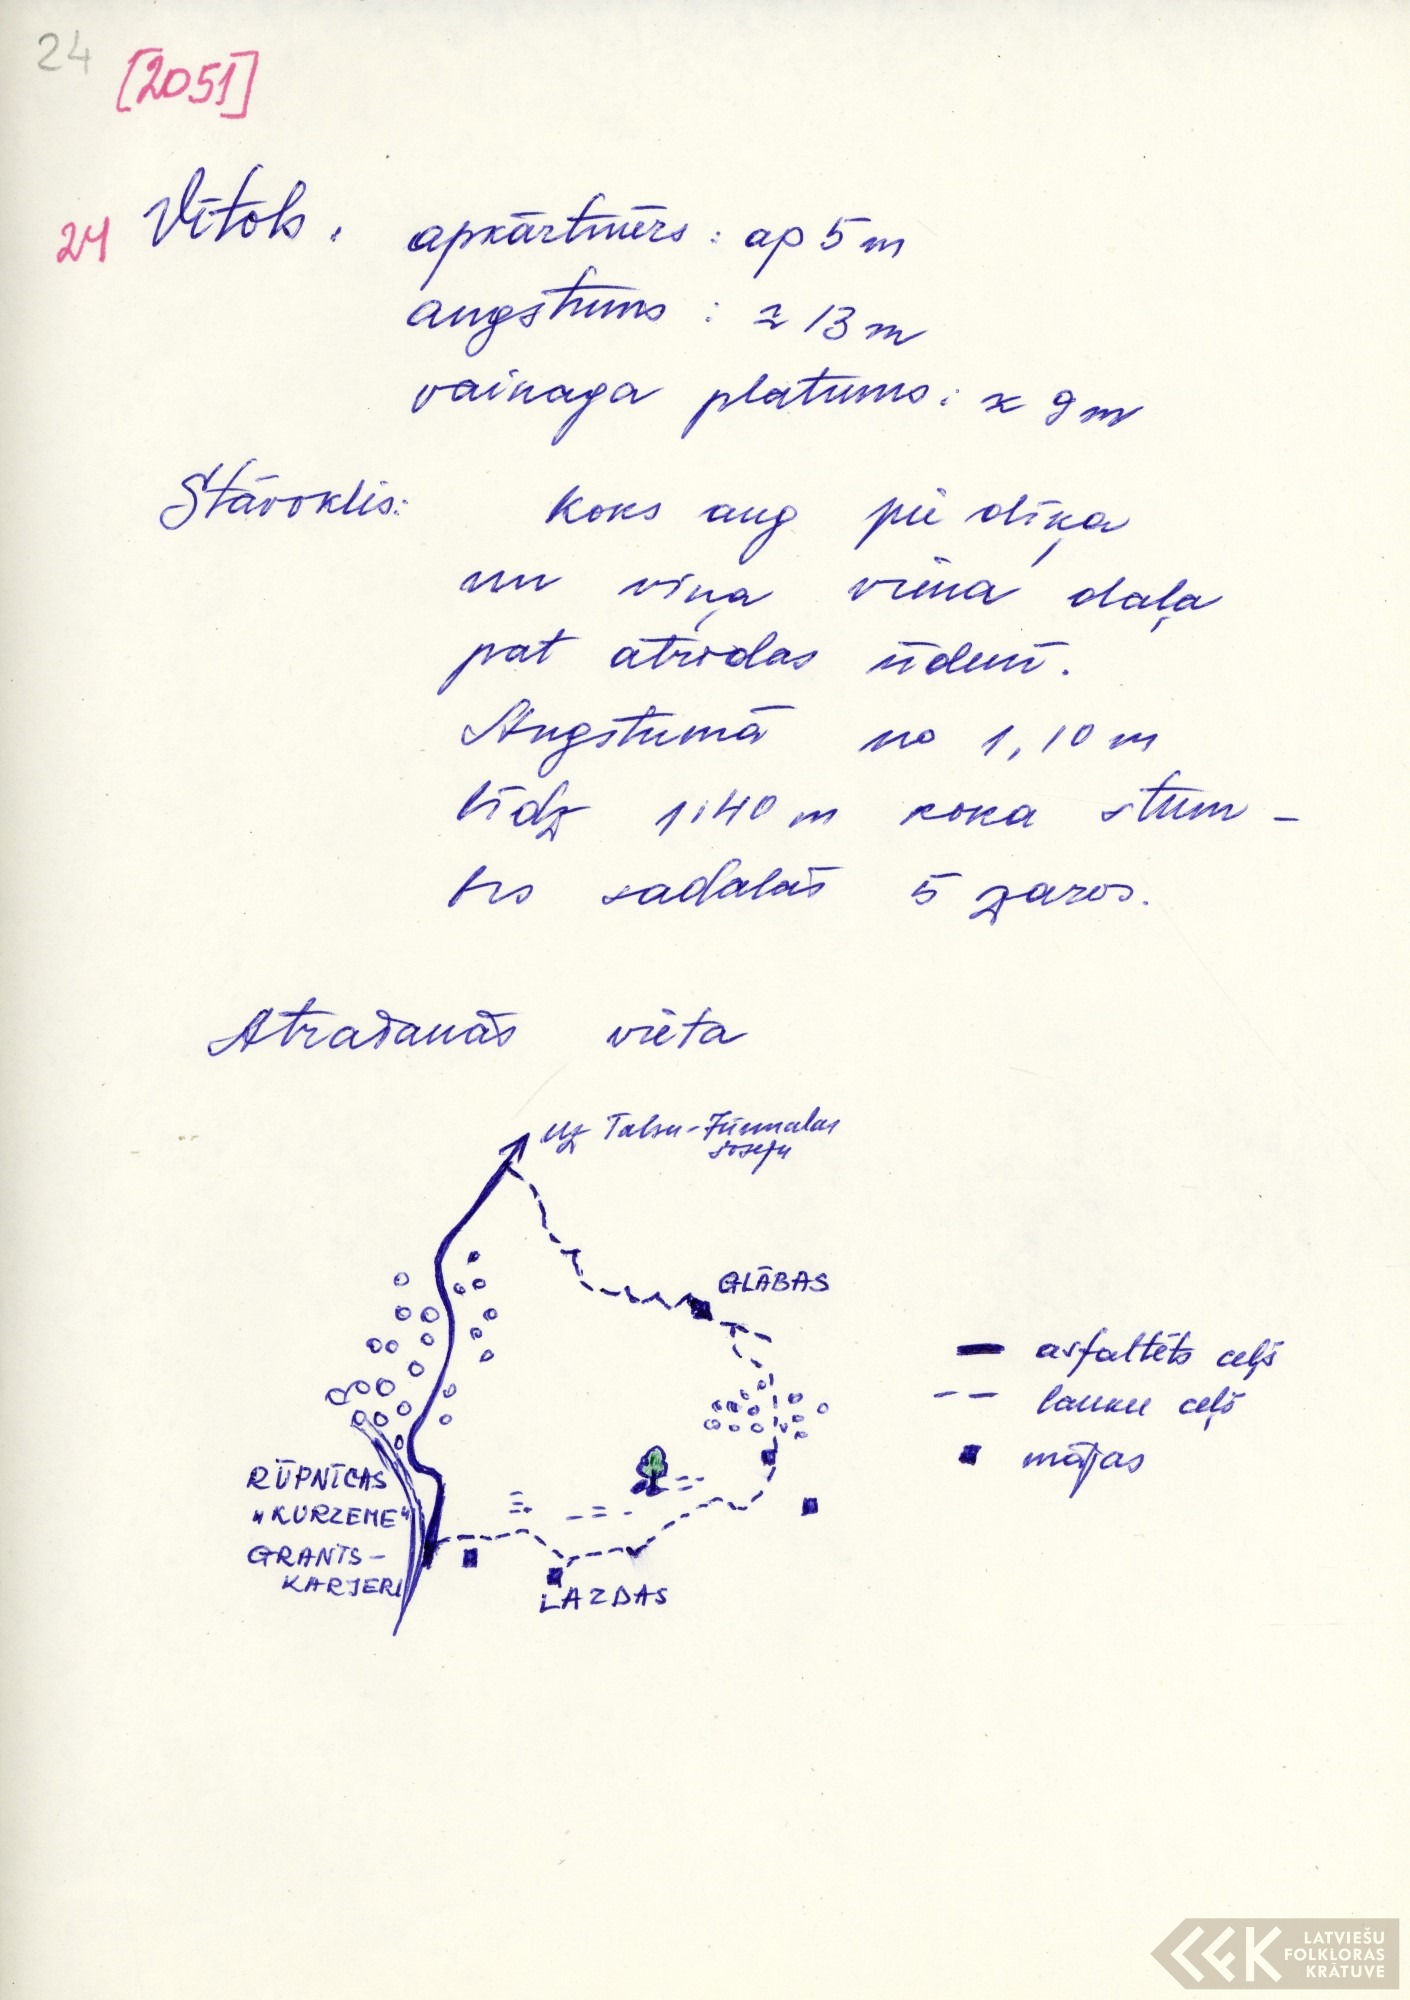 24
[2051]
24 Vītols. apkārtmērs: ap 5 m
augstums: ≈ 13 m
vainaga platums: ≈ 9 m
Stāvoklis: Koks aug pie dīķa
un viņa viena daļa
pat atrodas ūdenī.
Augstumā no 1,10 m
līdz 1,40 m koka stum-
brs sadalās 5 zaros.
Atrašanās vieta
uz Talsu-Jūrmalas
šoseju
GLĀBAS
asfaltēts ceļš
lauku ceļš
mājas
RŪPNĪCAS
"KURZEME"
GRANTS-
KARJERI
LAZDAS
LATVIEŠU
FOLKLORAS
KRĀTUVE